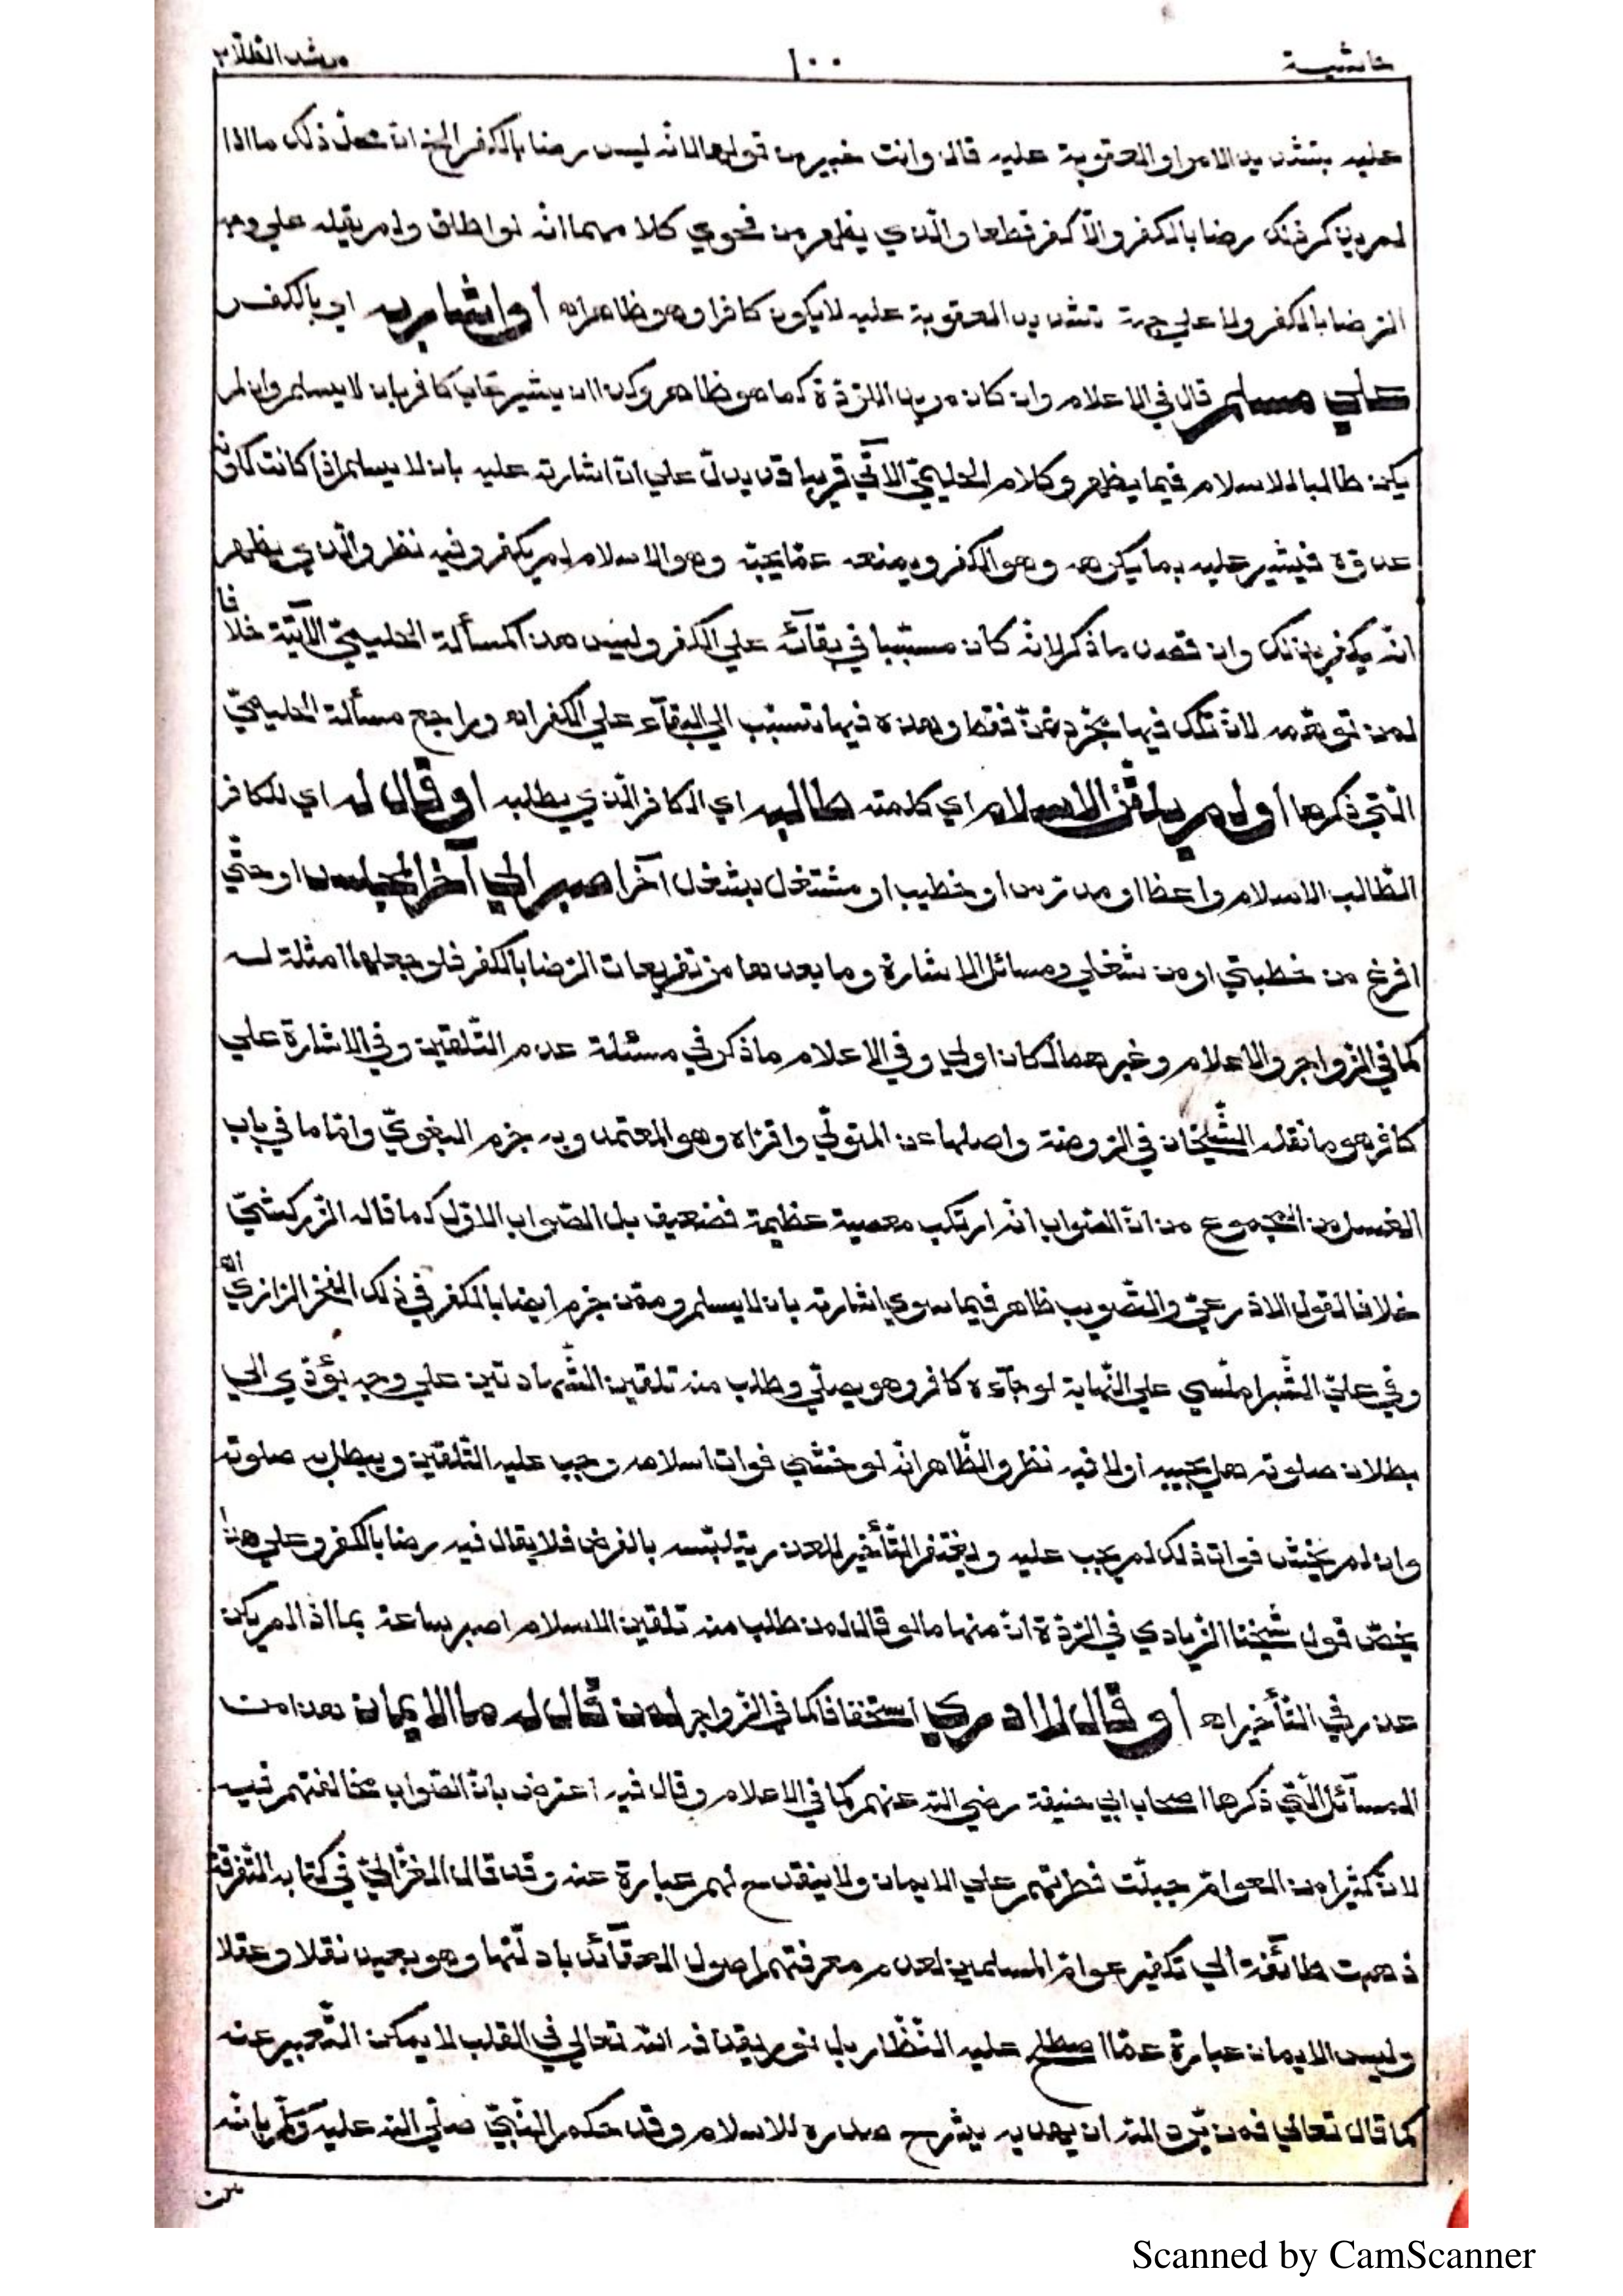 حاشية ١٠٠ مرشد الطلاب
عليه بتشديد الامر او العقوبة عليه قال وانت خبير من قولهما لانه ليس رضا بالكفر الخ ان محل ذلك ما اذا
لم يذكر ذلك رضا بالكفر والا كفر قطعا والذي يظهر من فحوي كلامهما انه لو اطلق ولم يقيله علي وجه
الرضا بالكفر ولا علي جهة تشديد العقوبة عليه لا يكون كافرا وهو ظاهر اه او اشار به اي بالكفر
علي مسلم قال في الاعلام وان كان مريد اللردة كما هو ظاهر وكذا ان يشير علي كافر بان لا يسلم وان لم
يكن طالبا للاسلام فيما يظهر وكلام الحليمي الآتي قريبا قد يدل علي ان اشارته عليه بان لا يسلم اذا كانت لكونه
عدوه فيشير عليه بما يكرهه وهو الكفر ويمنعه عما يحبه وهو الاسلام لم يكفر وفيه نظر والذي يظهر
انه يكفر بذلك وان قصد ما ذكر لانه كان متسببا في بقآئه علي الكفر وليس هذا كمسألة الحليمي الآتية خلافا
لمن توهمه لان تلك فيها مجرد تمن فقط وهذه فيها تسبب الي البقآء علي الكفر اه وراجع مسألة الحليمي
التي ذكرها او لم يلقن الاسلام اي كلمته طالبه اي الكافر الذي يطلبه او قال له اي للكافر
الطالب الاسلام واعظ او مدرس او خطيب او مشتغل بشغل آخر اصبر الي آخر المجلس او حتي
افرغ من خطبتي او من شغلي ومسائل الاشارة وما بعدها من تفريعات الرضا بالكفر فلو جعلها امثلة له
كما في الزواجر والاعلام وغيرهما لكان اولي وفي الاعلام ما ذكر في مسئلة عدم التلقين وفي الاشارة علي
كافر هو ما نقله الشيخان في الروضة واصلها عن المتولي واقراه وهو المعتمد وبه جزم البغوي واما ما في باب
الغسل من المجموع من ان الصواب انه ارتكب معصية عظيمة فضعيف بل الصواب الاول كما قاله الزركشي
خلافا لقول الاذرعي والتصويب ظاهر فيما سوي اشارته بان لا يسلم وممن جزم ايضا بالكفر في ذلك الفخر الرازي اه
وفي علي الشبراملسي علي النهاية لو جآءه كافر وهو يصلي وطلب منه تلقين الشهادتين علي وجه يؤدي الي
بطلان صلوته هل يجيبه اولا فيه نظر والظاهر انه لو خشي فوات اسلامه وجب عليه التلقين ويبطل به صلوته
وان لم يخش فوات ذلك لم يجب عليه ويغتفر التأخير للعذر بتلبسه بالفرض فلا يقال فيه رضا بالكفر وعلي هذا
يخص قول شيخنا الزيادي في الردة ان منها ما لو قال لمن طلب منه تلقين الاسلام اصبر ساعة بما اذا لم يكن
عذر في التأخير اه او قال لا ادري استخفافا كما في الزواجر لمن قال له ما الايمان هذا من
المسآئل التي ذكرها اصحاب ابي حنيفة رضي الله عنهم كما في الاعلام وقال فيه اعترض بان الصواب مخالفتهم فيه
لان كثيرا من العوام جبلت فطرتهم علي الايمان ولا ينقدح لهم عبارة عنه وقد قال الغزالي في كتابه التفرقة
ذهبت طائفة الي تكفير عوام المسلمين لعدم معرفتهم اصول العقآئد بادلتها وهو بعيد نقلا وعقلا
وليس الايمان عبارة عما اصطلح عليه النظار بل نور يقذفه الله تعالي في القلب لا يمكن التعبير عنه
كما قال تعالي فمن يرد الله ان يهديه يشرح صدره للاسلام وقد حكم النبي صلي الله عليه وسلم بانه